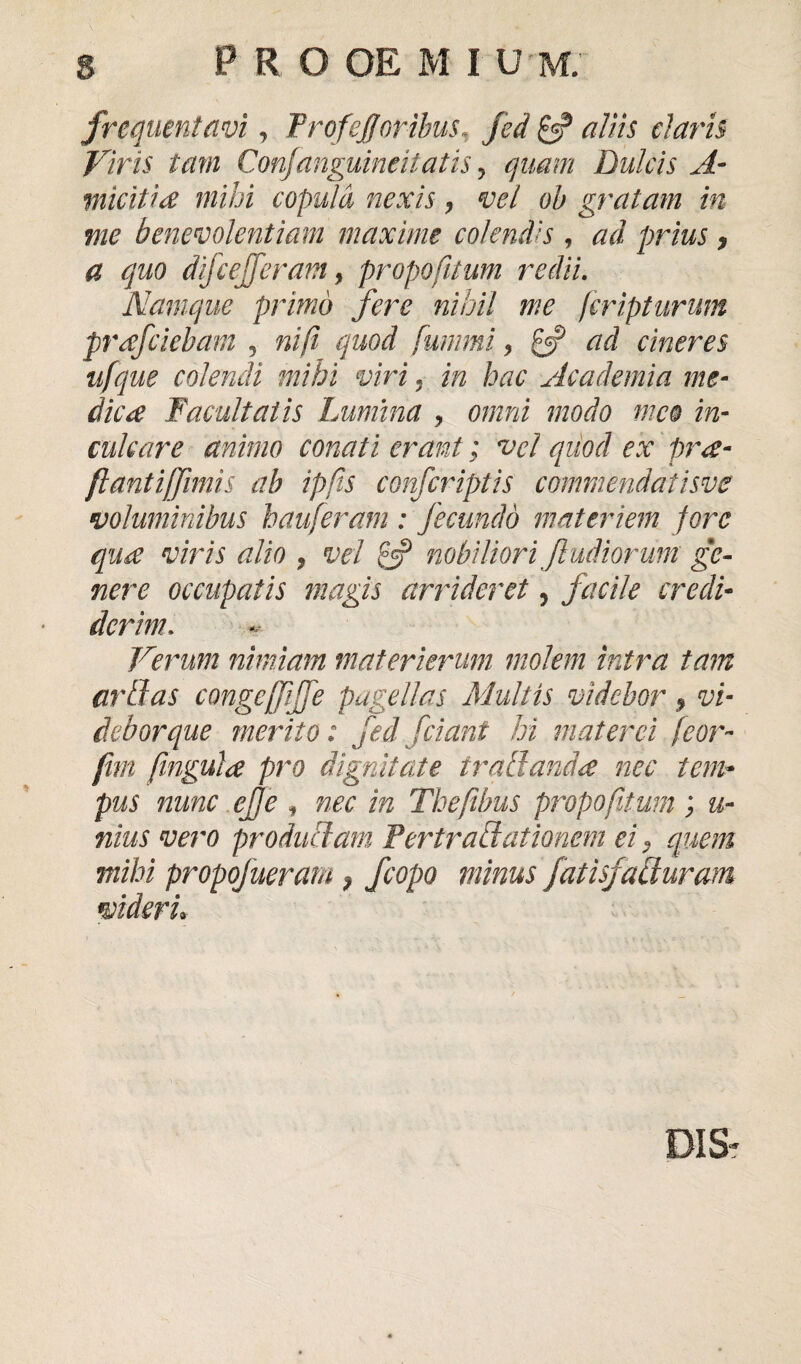 8 PROOEMIUM.
frequentavi, Profeſſoribus, ſed & aliis claris
Viris tam Conſanguineitatis, quam Dulcis A-
micitiæ mihi copulâ nexis, vel ob gratam in
me benevolentiam maxime colendis, ad prius,
a quo diſceſſeram, propoſitum redii.
Namque primò fere nihil me ſcripturum
præſciebam, niſi quod ſummi, & ad cineres
uſque colendi mihi viri, in hac Academia me-
dicæ Facultatis Lumina, omni modo meo in-
culcare animo conati erant; vel quod ex præ-
ſtantiſſimis ab ipſis conſcriptis commendatisve
voluminibus hauſeram: ſecundò materiem fore
quæ viris alio, vel & nobiliori ſtudiorum ge-
nere occupatis magis arrideret, facile credi-
derim.
Verum nimiam materierum molem intra tam
arctas congeſſiſſe pagellas Multis videbor, vi-
deborque merito: ſed ſciant hi materei ſeor-
ſim ſingulæ pro dignitate tractandæ nec tem-
pus nunc eſſe, nec in Theſibus propoſitum; u-
nius vero productam Pertractationem ei, quem
mihi propoſueram, ſcopo minus ſatisfacturam
videri.
DIS-